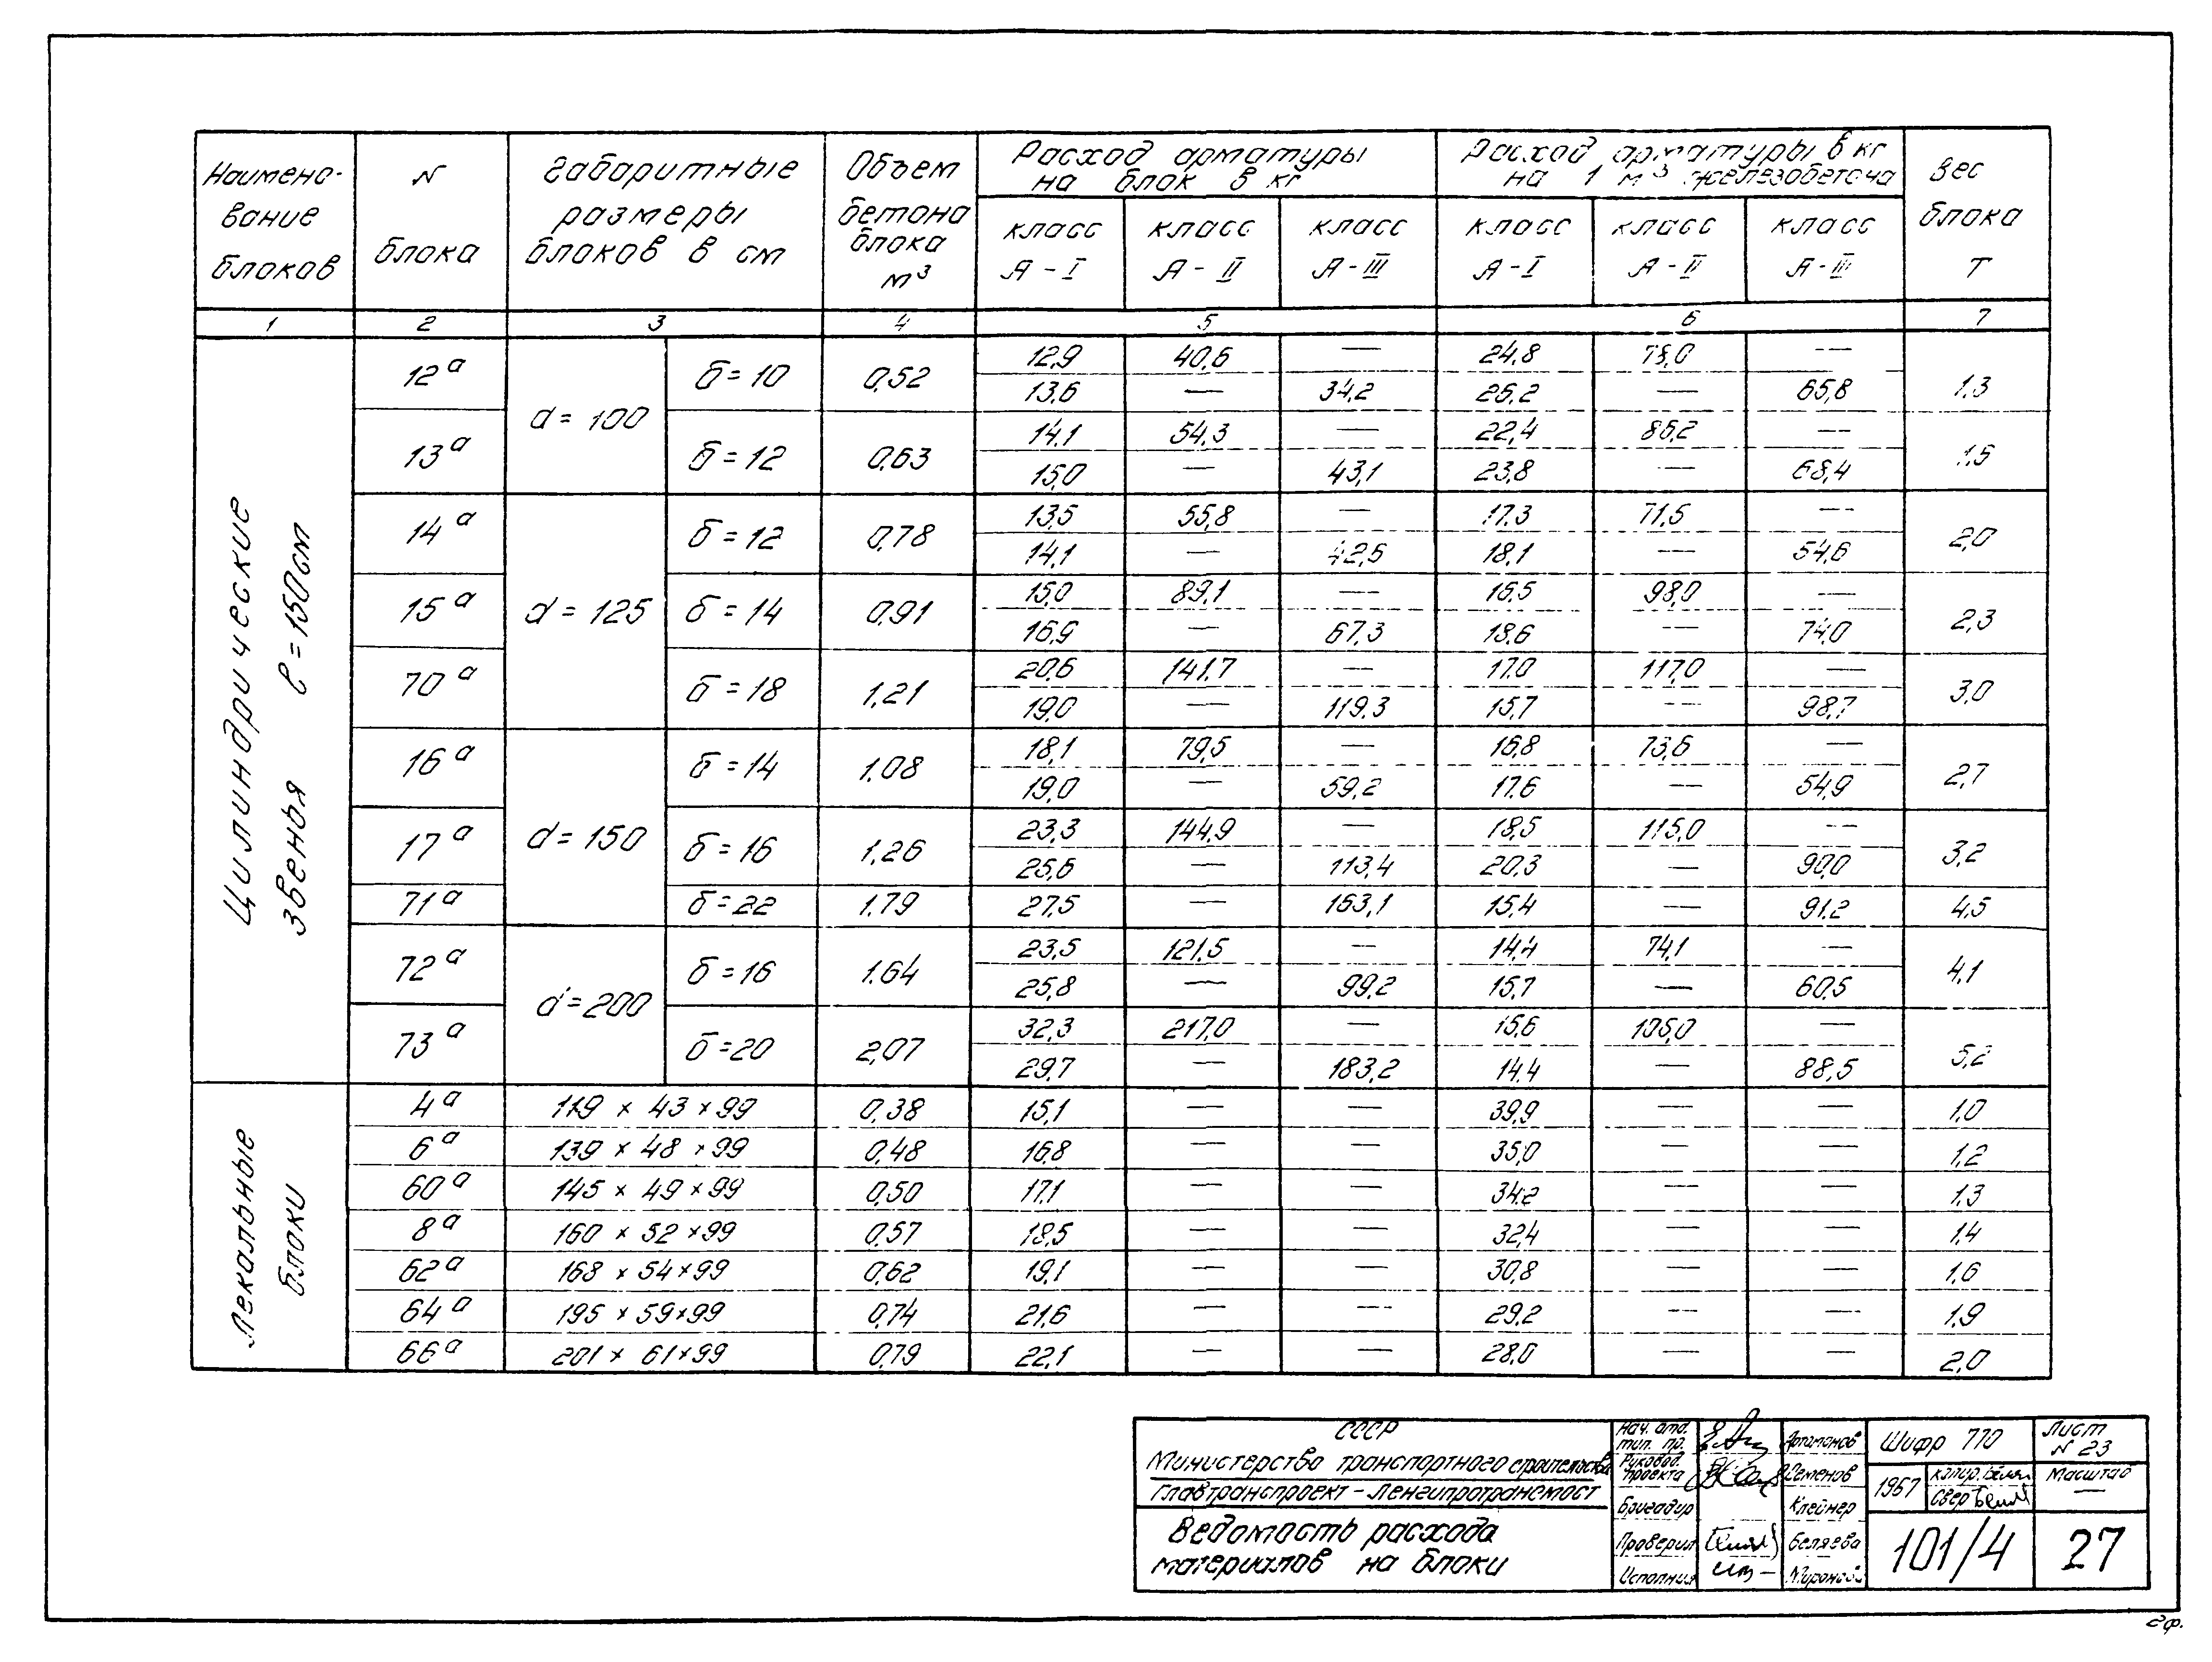 Наимено-
вание
блоков
N
блока
Габаритные
размеры
блоков в см
Объем
бетона
блока
м³
Расход арматуры
на блок в кг
Расход арматуры в кг
на 1 м³ железобетона
Вес
блока
Т
класс А-I класс А-II класс А-III класс А-I класс А-II класс А-III
1 2 3 4 5 6 7
Цилиндрические
звенья ℓ=150см
12ᵃ d=100 δ=10 0,52 12,9 40,6 — 24,8 78,0 — 1,3
13,6 — 34,2 26,2 — 65,8
13ᵃ δ=12 0,63 14,1 54,3 — 22,4 86,2 — 1,6
15,0 — 43,1 23,8 — 68,4
14ᵃ d=125 δ=12 0,78 13,5 55,8 — 17,3 71,5 — 2,0
14,1 — 42,6 18,1 — 54,6
15ᵃ δ=14 0,91 15,0 89,1 — 16,5 98,0 — 2,3
16,9 — 67,3 18,6 — 74,0
70ᵃ δ=18 1,21 20,6 141,7 — 17,0 117,0 — 3,0
19,0 — 119,3 15,7 — 98,7
16ᵃ d=150 δ=14 1,08 18,1 79,5 — 16,8 73,6 — 2,7
19,0 — 59,2 17,6 — 54,9
17ᵃ δ=16 1,26 23,3 144,9 — 18,5 115,0 — 3,2
25,6 — 113,4 20,3 — 90,0
71ᵃ δ=22 1,79 27,5 — 163,1 15,4 — 91,2 4,5
72ᵃ d=200 δ=16 1,64 23,5 121,5 — 14,4 74,1 — 4,1
25,8 — 99,2 15,7 — 60,5
73ᵃ δ=20 2,07 32,3 217,0 — 15,6 105,0 — 5,2
29,7 — 183,2 14,4 — 88,5
Лекальные
блоки
4ᵃ 119×43×99 0,38 15,1 — — 39,9 — — 1,0
6ᵃ 139×48×99 0,48 16,8 — — 35,0 — — 1,2
60ᵃ 145×49×99 0,50 17,1 — — 34,2 — — 1,3
8ᵃ 160×52×99 0,57 18,5 — — 32,4 — — 1,4
62ᵃ 168×54×99 0,62 19,1 — — 30,8 — — 1,6
64ᵃ 195×59×99 0,74 21,6 — — 29,2 — — 1,9
66ᵃ 201×61×99 0,79 22,1 — — 28,0 — — 2,0
СССР
Министерство транспортного строительства
Главтранспроект - Ленгипротрансмост
Ведомость расхода
материалов на блоки
Нач. отд.
тип. пр. Артамонов
Руковод.
проекта Семенов
Бригадир Клейнер
Проверил Беляева
Исполнил Миронова
Шифр 770
Лист
N 23
1967
копир.
Свер
Масштаб
—
101/4
27
2ф.